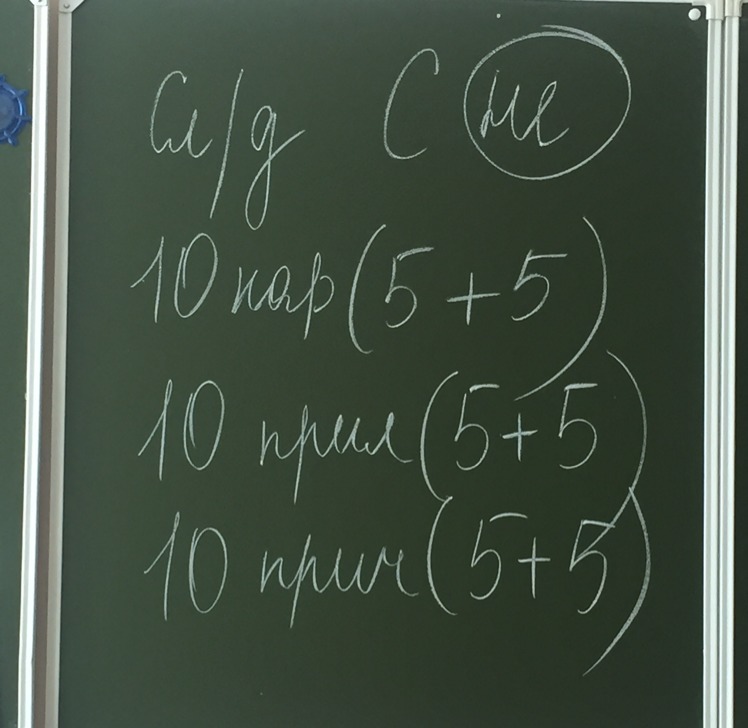 Сл/д с не
10 нар (5 + 5)
10 прил (5 + 5)
10 прич (5 + 5)